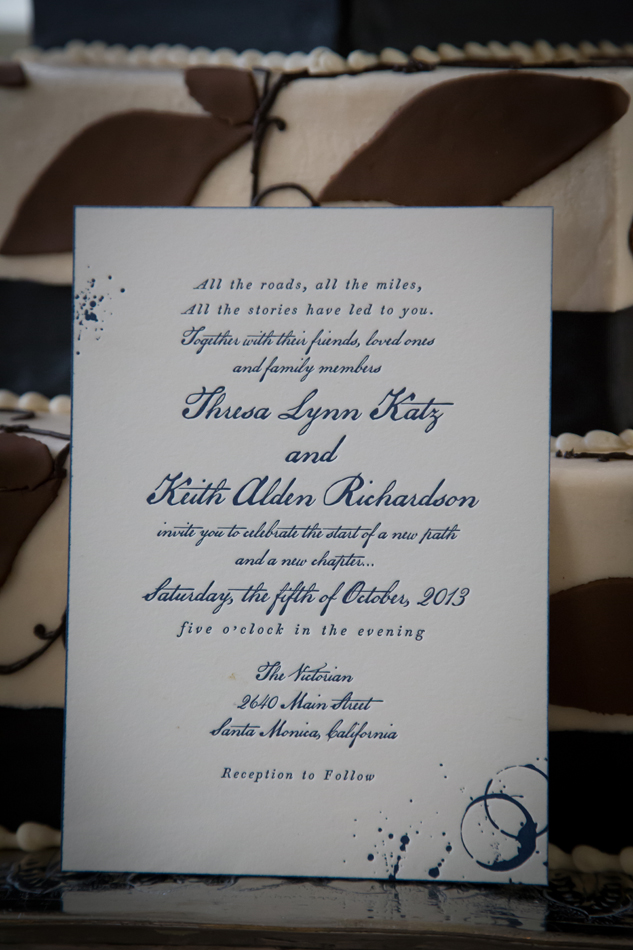 All the roads, all the miles,
All the stories have led to you.
Together with their friends, loved ones
and family members
Thresa Lynn Katz
and
Keith Alden Richardson
invite you to celebrate the start of a new path
and a new chapter...
Saturday, the fifth of October, 2013
five o'clock in the evening
The Victorian
2640 Main Street
Santa Monica, California
Reception to Follow